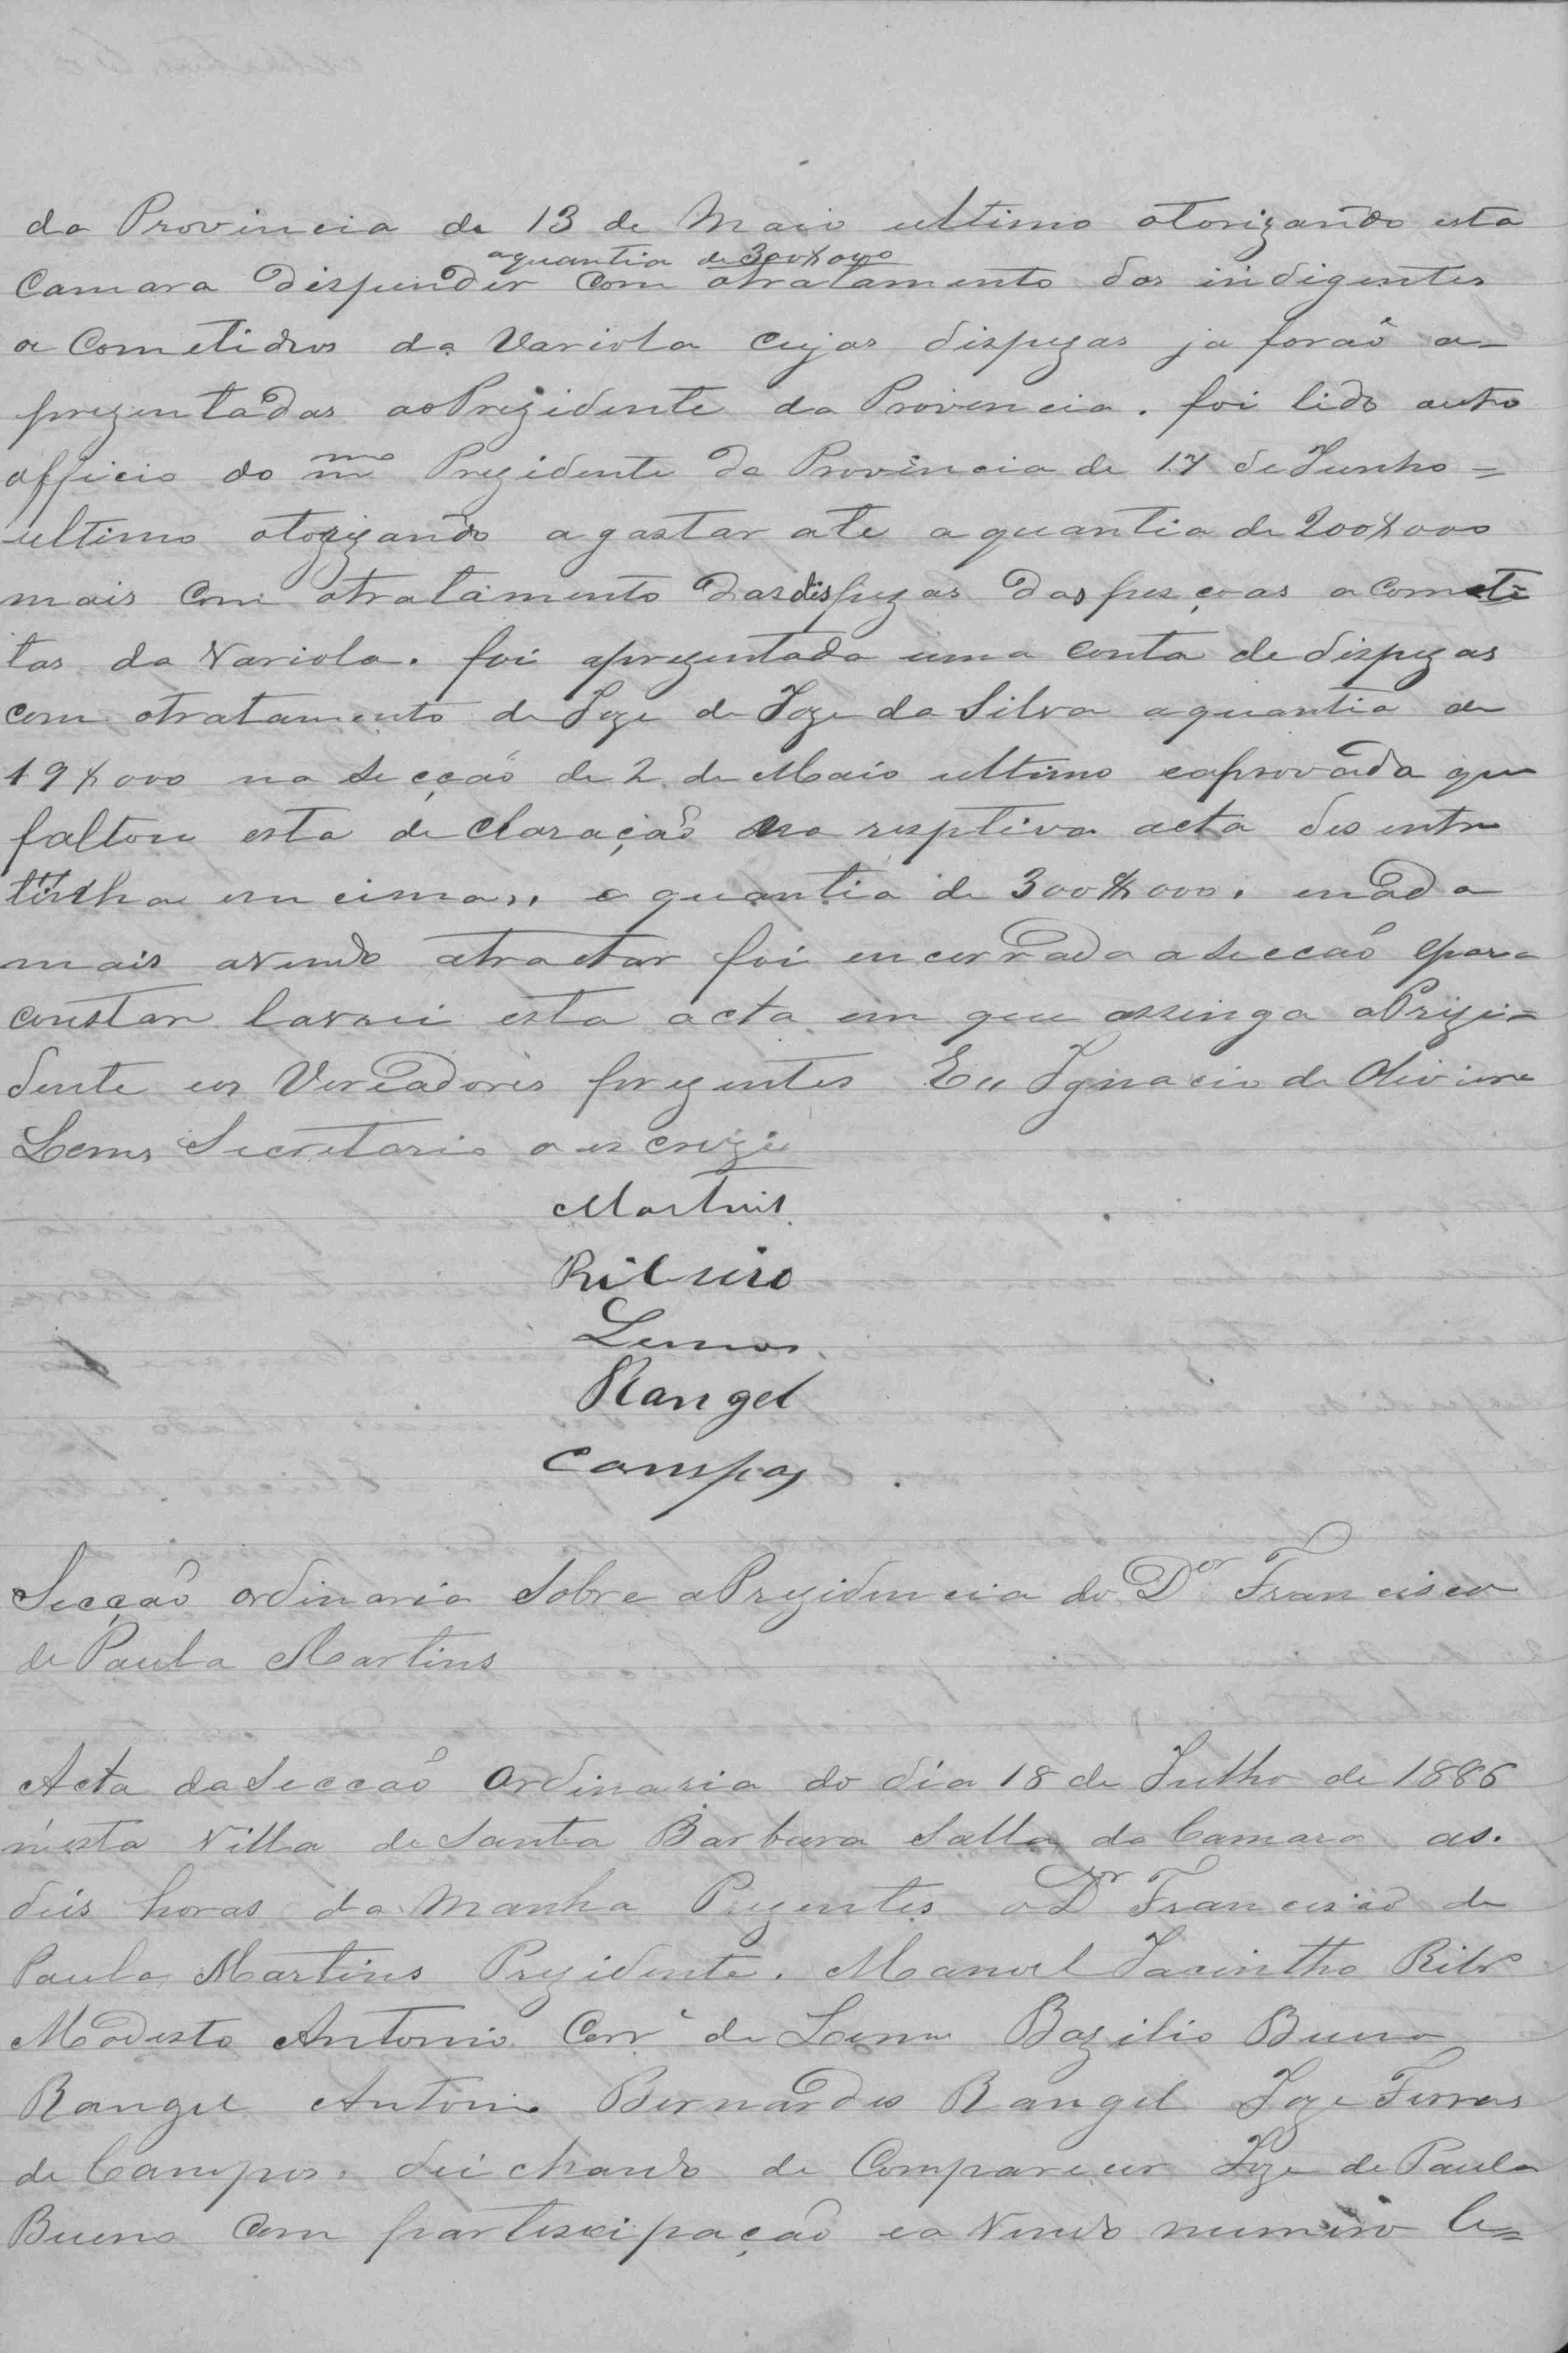 da Provincia de 13 de Maio ultimo otorizando esta
aquantia de 300$000
Camara dispender com otratamento dos indigentes
a Cometidos da Variola cujas dispezas ja foraõ a-
prezentadas aoPrezidente da Provincia. foi lido outro
officio do mmo Prezidente da Provincia de 17 de Junho =
ultimo otorizando agastar ate aquantia de 200$000
mais com otratamento dasdispezas das pesçoas acometi
tas da Variola. foi aprezentada uma conta de dispezas
com otratamento de Joze de Joze da Silva aquantia de
19$000 na Secçaõ de 2 de Maio ultimo eaprovada que
faltou esta de claraçaõ na resptiva acta des entre
linha em cima,, a quantia de 300$000. enada
mais avendo atractar foi encerrada aSeccaõ epara
constar lavrei esta acta em que assinga oPrezi=
dente eos Vereadores prezentes Eu Ignacio de Oliviera
Lems Secretario o es crevi
Martins
Ribeiro
Lemos
Rangel
Campos
Secçaõ ordinaria Sobre aPrezidencia do Dor Francisco
de Paula Martins
Acta daSeccaõ Ordinaria do dia 18 de Julho de 1886
nesta Villa de Santa Barbara Salla da Camara as.
deis horas da Manha Prezentes oDr Francisco de
Paula Martins Prezidente. Manoel Jacintho Ribr
Modesto Antonio Corr de Lemos Bazilio Bueno
Rangel Antonio Bernardes Rangel Joze Ferras
de Campos, deichando de Comparecer Joze de Paula
Bueno com partiscipaçaõ ea Vendo numero le=